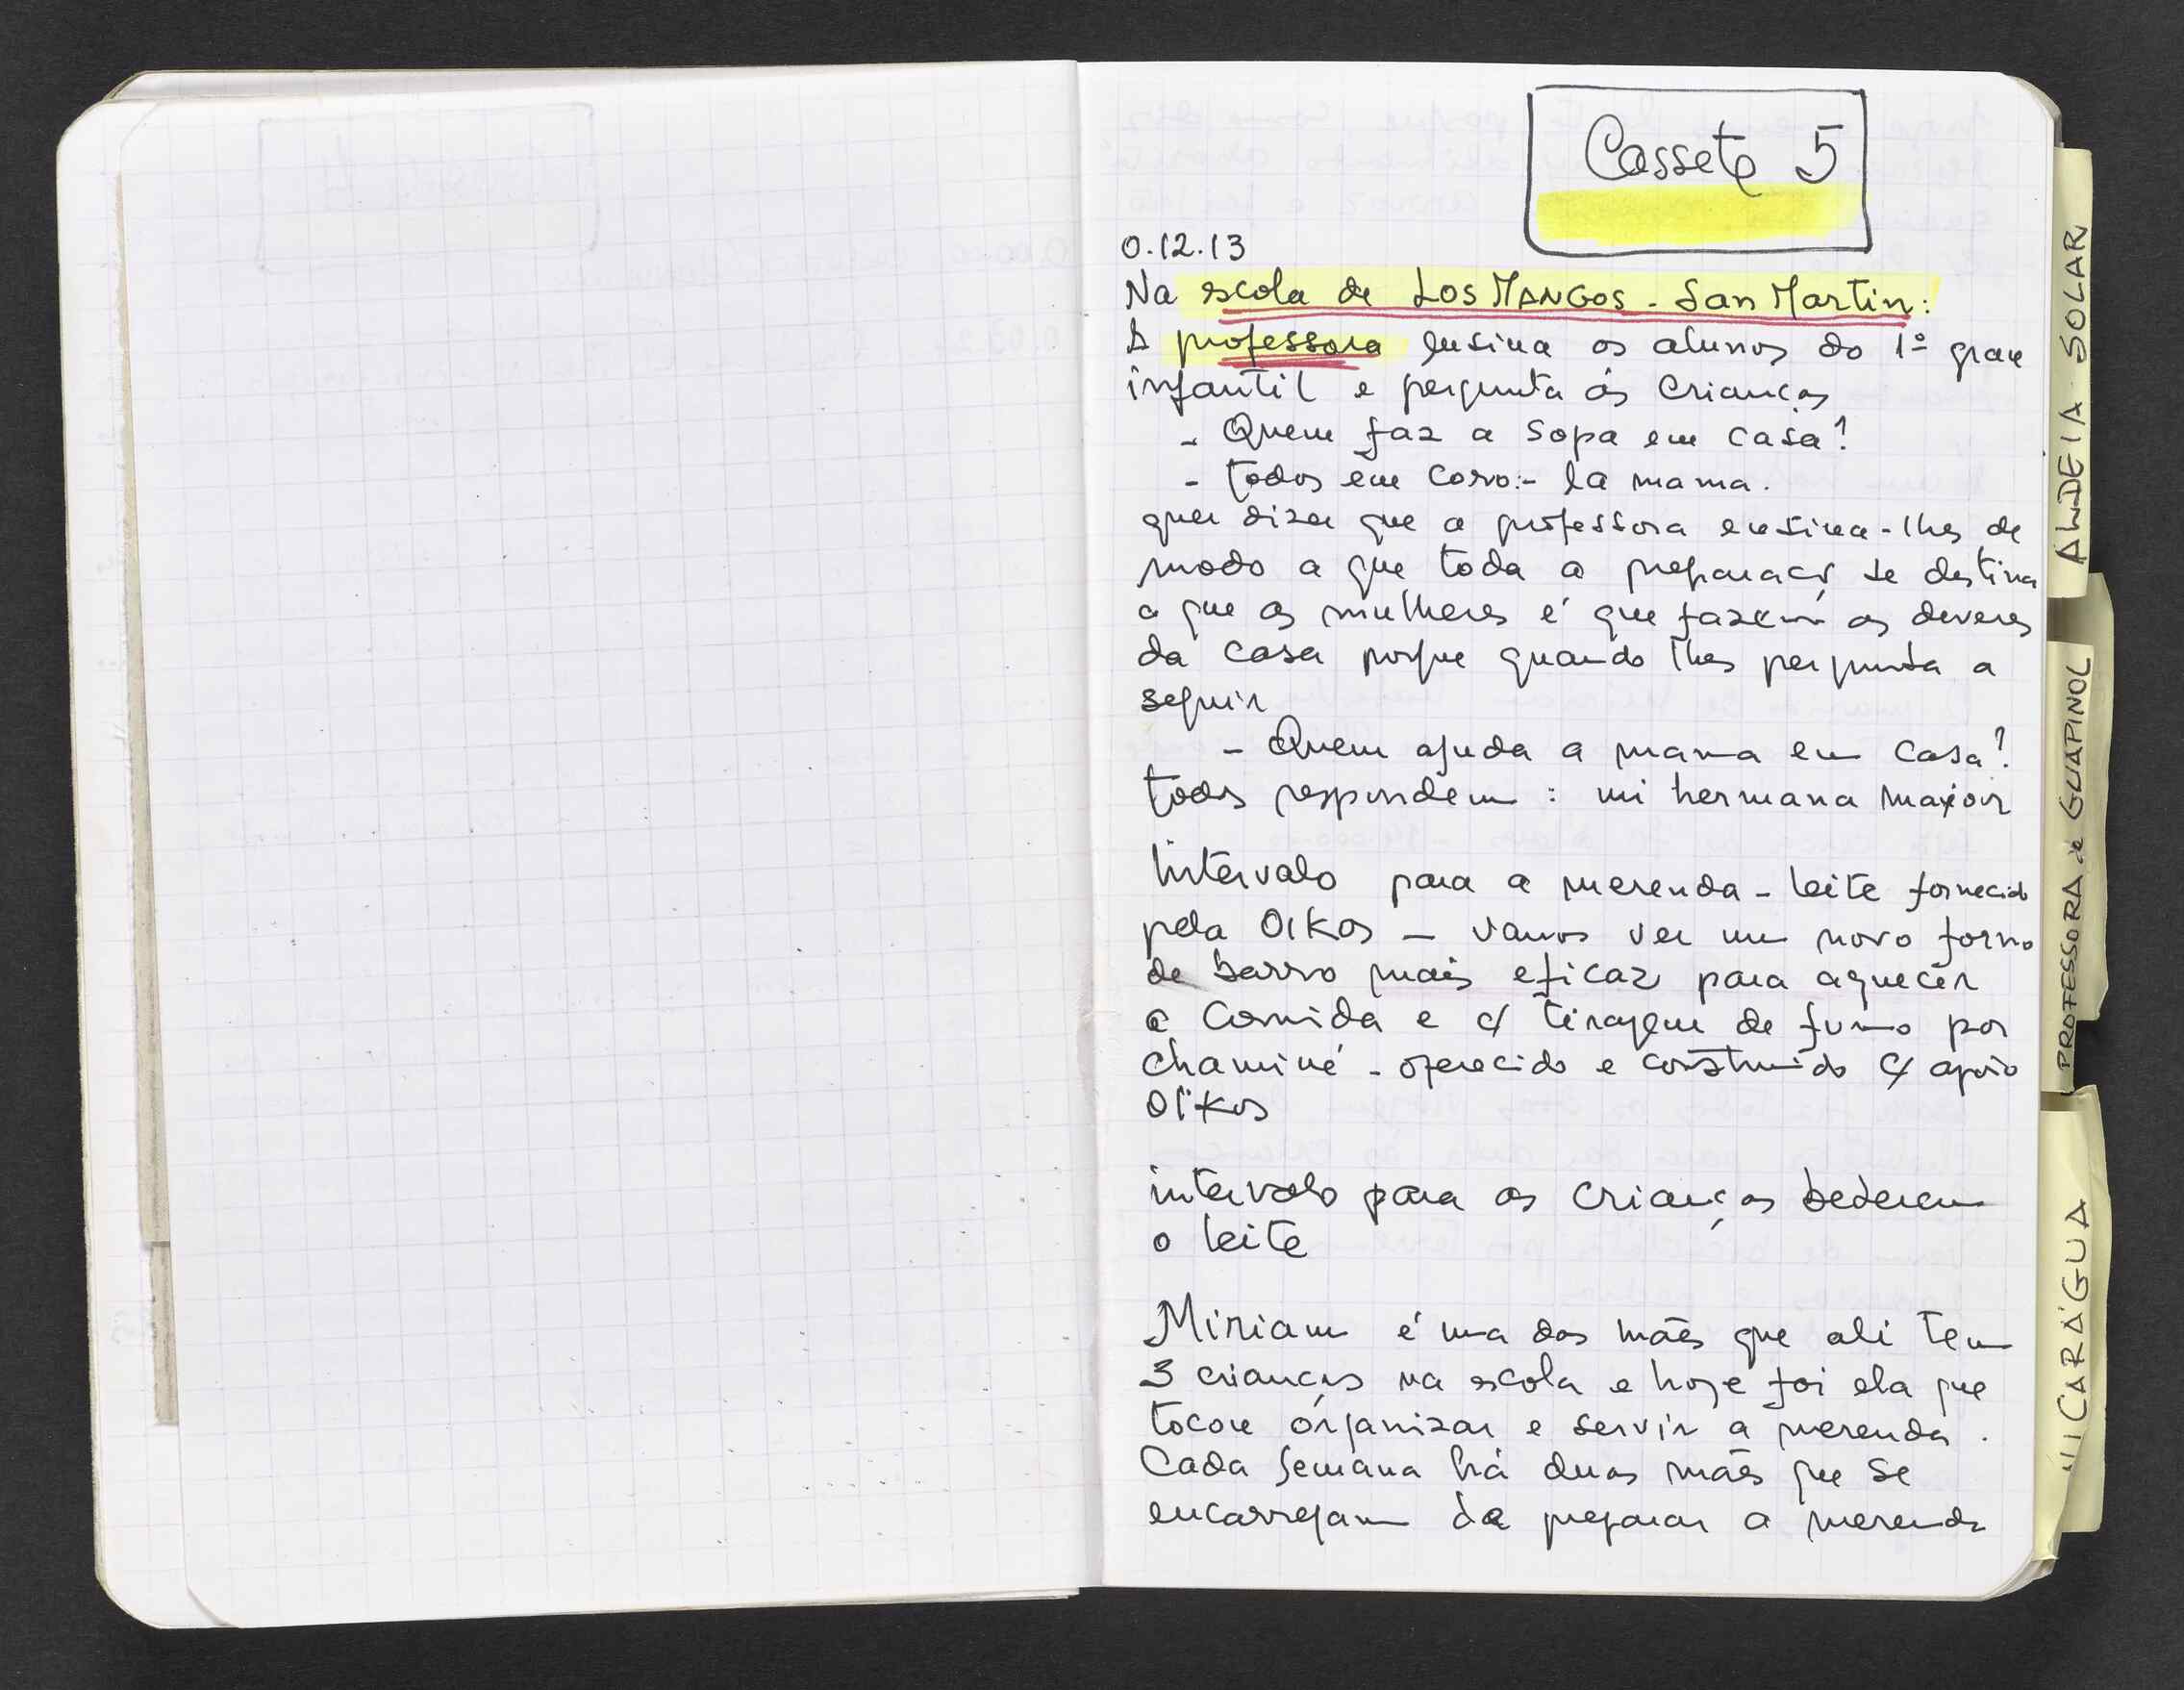 Cassete 5
0.12.13
Na escola de LOS MANGOS - San Martin:
A professora ensina os alunos do 1º grau
infantil e pergunta ás crianças
- Quem faz a sopa em casa?
- todos em coro:- la mama.
quer dizer que a professora ensina-lhes de
modo a que toda a preparação se destina
a que as mulheres é que fazem os deveres
da casa porque quando lhes pergunta a
seguir
- Quem ajuda a mama em casa?
todos respondem : mi hermana maior
Intervalo para a merenda - leite fornecido
pela OIKOS - vamos ver um novo forno
de barro mais eficaz para aquecer
a comida e c/ tiragem de fumo por
chaminé - oferecido e construido c/ apoio
Oikos
intervalo para as crianças beberem
o leite
Miriam é uma das mães que ali tem
3 crianças na escola e hoje foi ela que
tocou organizar e servir a merenda.
Cada semana há duas mães que se
encarregam de preparar a merenda
ALDEIA SOLAR
PROFESSORA de GUAPINOL
NICARÁGUA